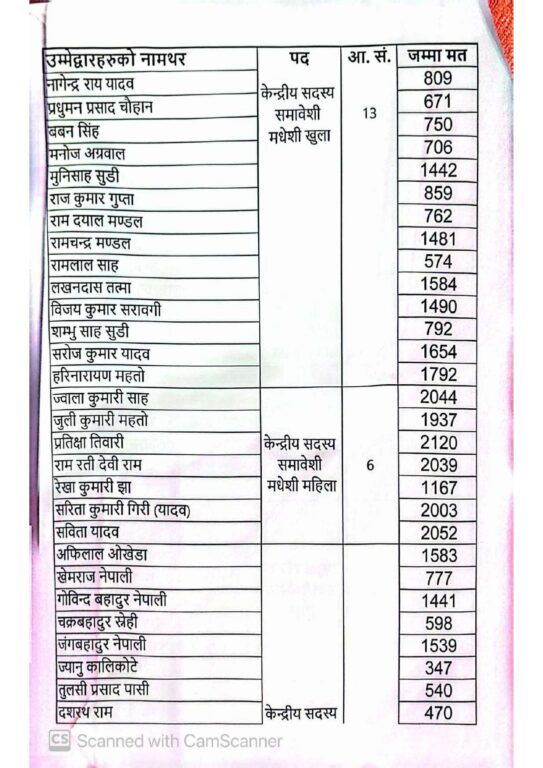 उम्मेद्वारहरुको नामथर पद आ. सं. जम्मा मत
नागेन्द्र राय यादव 809
प्रधुमन प्रसाद चोहान केन्द्रीय सदस्य समावेशी मधेशी खुला 13 671
बबन सिंह 750
मनोज अग्रवाल 706
मुनिसाह सुडी 1442
राज कुमार गुप्ता 859
राम दयाल मण्डल 762
रामचन्द्र मण्डल 1481
रामलाल साह 574
लखनदास तत्मा 1584
विजय कुमार सरावगी 1490
शम्भु साह सुडी 792
सरोज कुमार यादव 1654
हरिनारायण महतो 1792
ज्वाला कुमारी साह 2044
जुली कुमारी महतो 1937
प्रतिक्षा तिवारी केन्द्रीय सदस्य समावेशी मधेशी महिला 6 2120
राम रती देवी राम 2039
रेखा कुमारी झा 1167
सरिता कुमारी गिरी (यादव) 2003
सविता यादव 2052
अफिलाल ओखेडा 1583
खेमराज नेपाली 777
गोविन्द बहादुर नेपाली 1441
चक्रबहादुर स्नेही 598
जंगबहादुर नेपाली 1539
ज्यानु कालिकोटे 347
तुलसी प्रसाद पासी 540
दशरथ राम केन्द्रीय सदस्य 470
CS Scanned with CamScanner